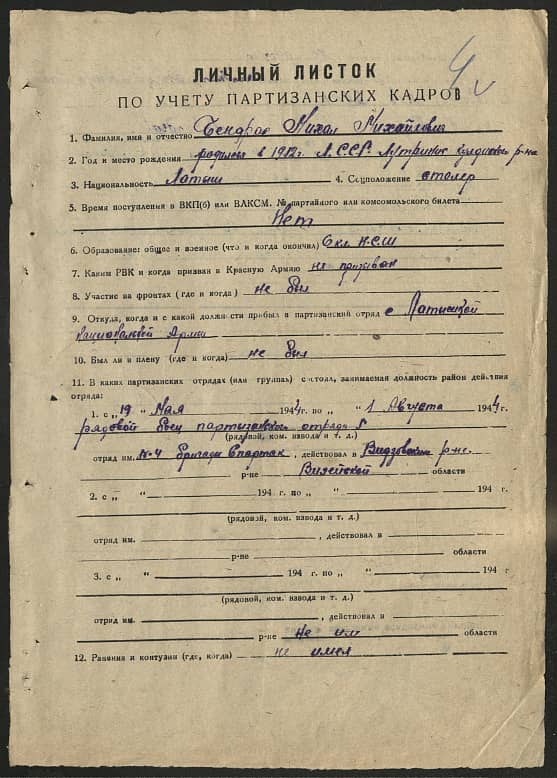 4
ЛИЧНЫЙ ЛИСТОК
ПО УЧЕТУ ПАРТИЗАНСКИХ КАДРОВ
1. Фамилия, имя и отчество Михал Михайлович
2. Год и место рождения родился в 1912г. Л.С.С.Р. р-на
3. Национальность Латыш 4. Соцположение столяр
5. Время поступления в ВКП(б) или ВЛКСМ. № партийного или комсомольского билета
Нет
6. Образование: общее и военное (что и когда окончил) 6 кл. Н.С.Ш
7. Каким РВК и когда призван в Красную Армию не призван
8. Участие на фронтах (где и когда) не был
9. Откуда, когда и с какой должности прибыл в партизанский отряд с Латышской
национальной Армии
10. Был ли в плену (где и когда) не был
11. В каких партизанских отрядах (или группах) состоял, занимаемая должность район действия
отряда:
1. с „19 “ Мая 1944г. по „ “ 1 Августа 1944г.
рядовой боец партизанского отряда
(рядовой, ком. взвода и т. д.)
отряд им. № 4 бригады Спартак, действовал в Видзовском р-не.
р-не Вилейской области
2. с „ “ 194 г. по „ “ 194 г.
(рядовой, ком. взвода и т. д.)
отряд им. , действовал в
р-не области
3. с „ “ 194 г. по „ “ 194 г
(рядовой, ком. взвода и т. д.)
отряд им. , действовал в
р-не не им области
12. Ранения и контузии (где, когда) не имел